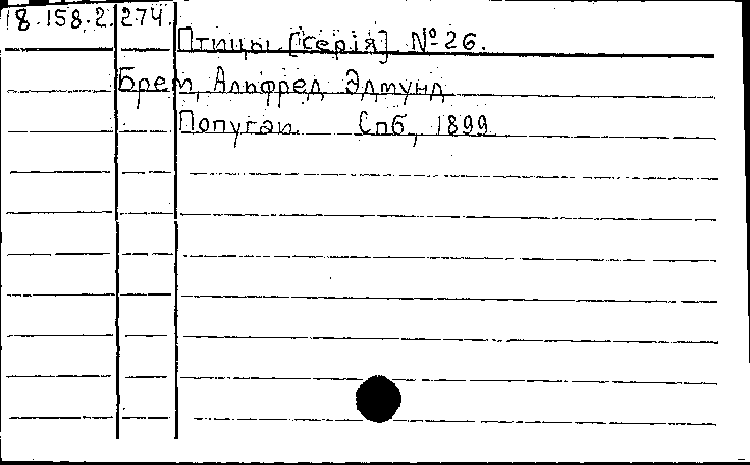 18.158.2.274.
Птицы [серія] № 26.
Брем, Альфред Эдмунд
Попугаи. Спб., 1899